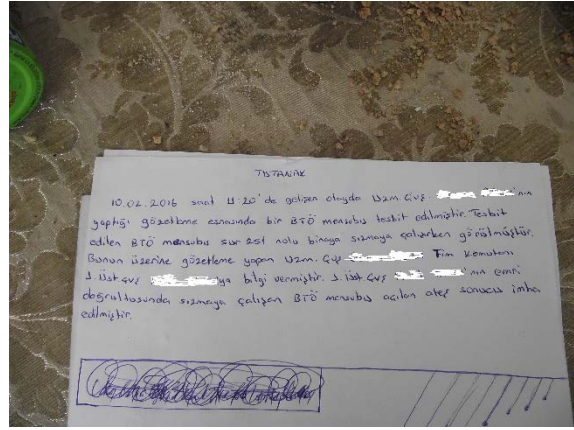 TUTANAK
10.02.2016 saat 11:20'de gelişen olayda Uzm. Çvş. 'nın
yaptığı gözetleme esnasında bir BTÖ mensubu tesbit edilmiştir. Tesbit
edilen BTÖ mensubu sur 251 nolu binaya sızmaya çalışırken görülmüştür.
Bunun üzerine gözetleme yapan Uzm. Çvş Tim komutanı
J. Üst Çvş 'ya bilgi vermiştir. J. Üst Çvş 'nın emri
doğrultusunda sızmaya çalışan BTÖ mensubu açılan ateş sonucu imha
edilmiştir.